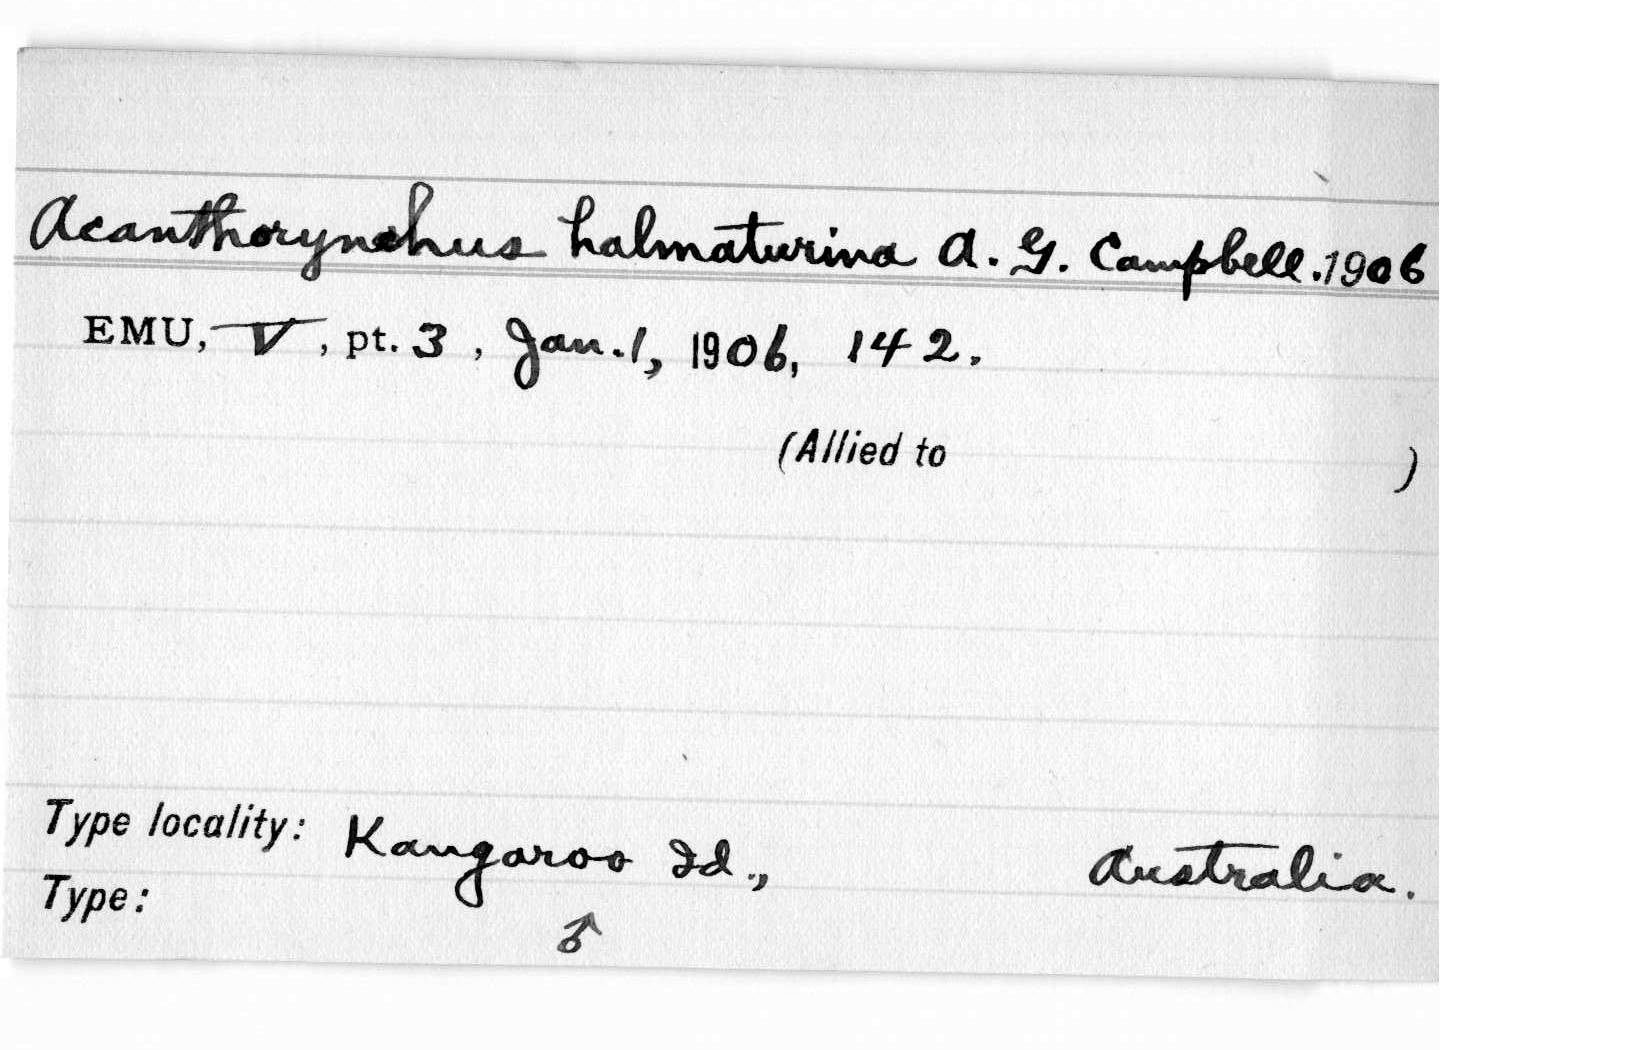 Acanthorynchus halmaturina A. G. Campbell. 1906
EMU, V, pt. 3, Jan. 1, 1906, 142.
(Allied to )
Type locality: Kangaroo Id., Australia.
Type: ♂